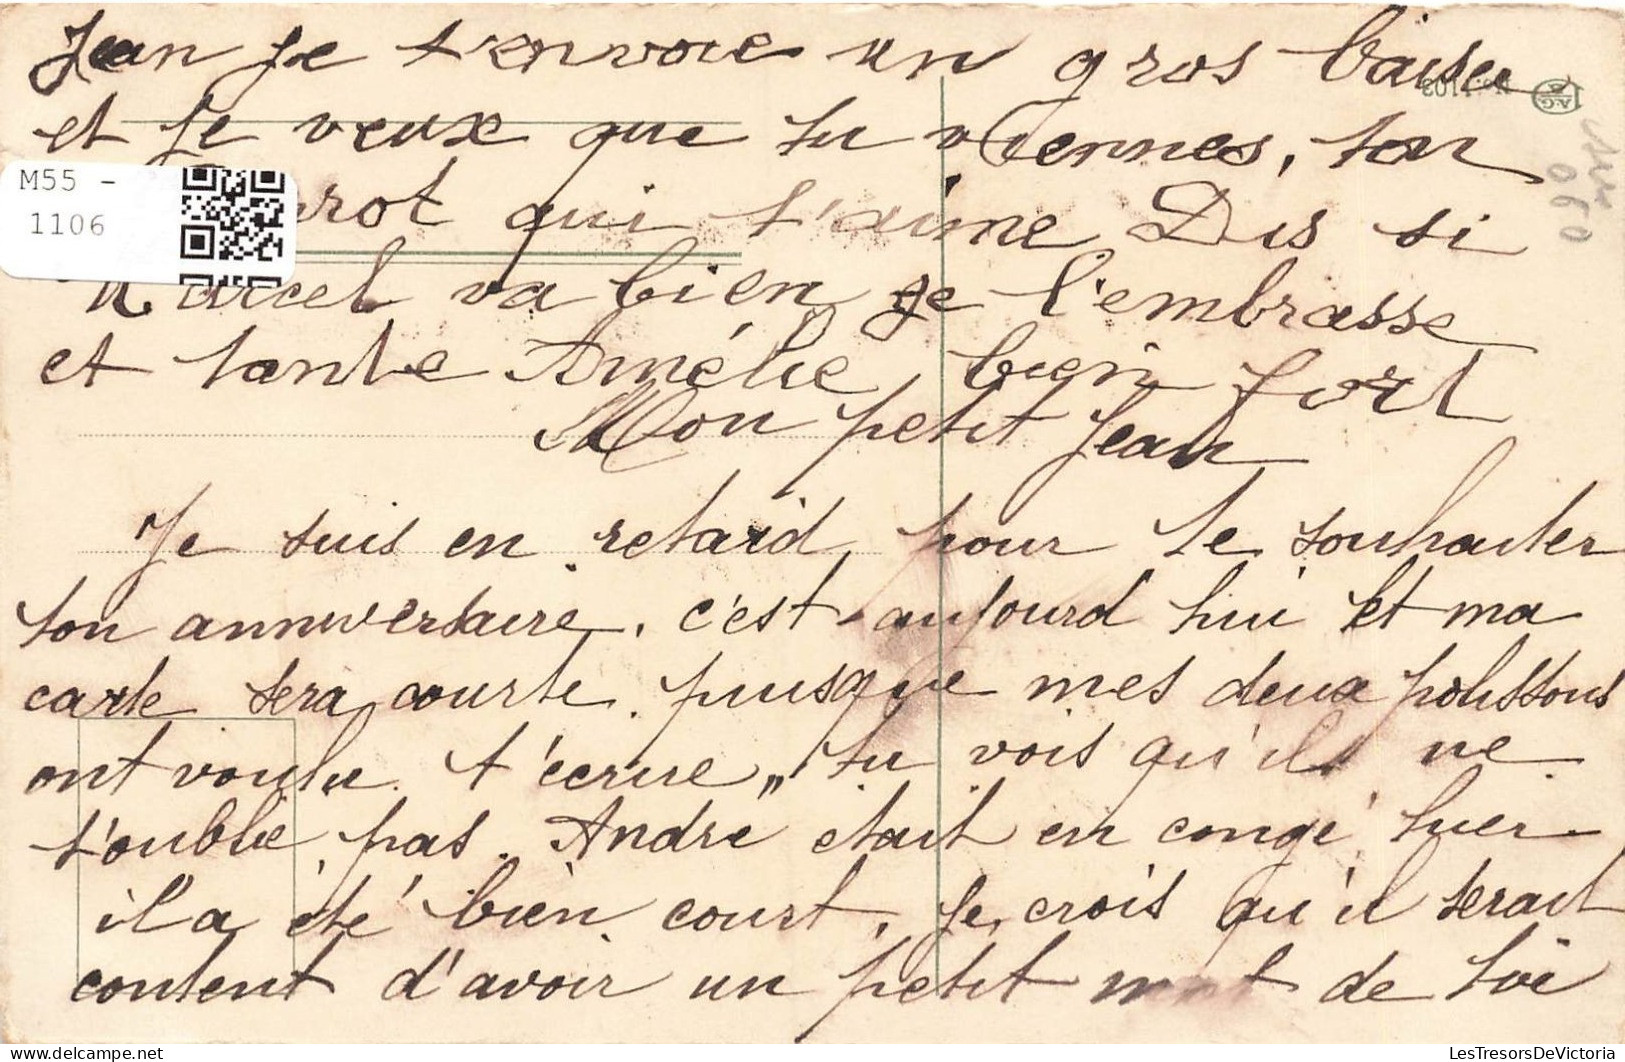 Jean je t'envoie un gros baiser
et je veux que tu viennes, ton
rrot qui t'aime Dis si
Marcel va bien je l'embrasse
et tante Amélie bien fort
Mon petit Jean
Je suis en retard pour te souhaiter
ton anniversaire, c'est aujourd hui et ma
carte sera courte puisque mes deux polissons
ont voulu t'écrire,, tu vois qu'ils ne
t'oublie pas. André était en congé hier
il a été bien court, je crois qu'il serait
content d'avoir un petit mot de toi
M55 -
1106
A.G
060
LesTresorsDeVictoria
www.delcampe.net